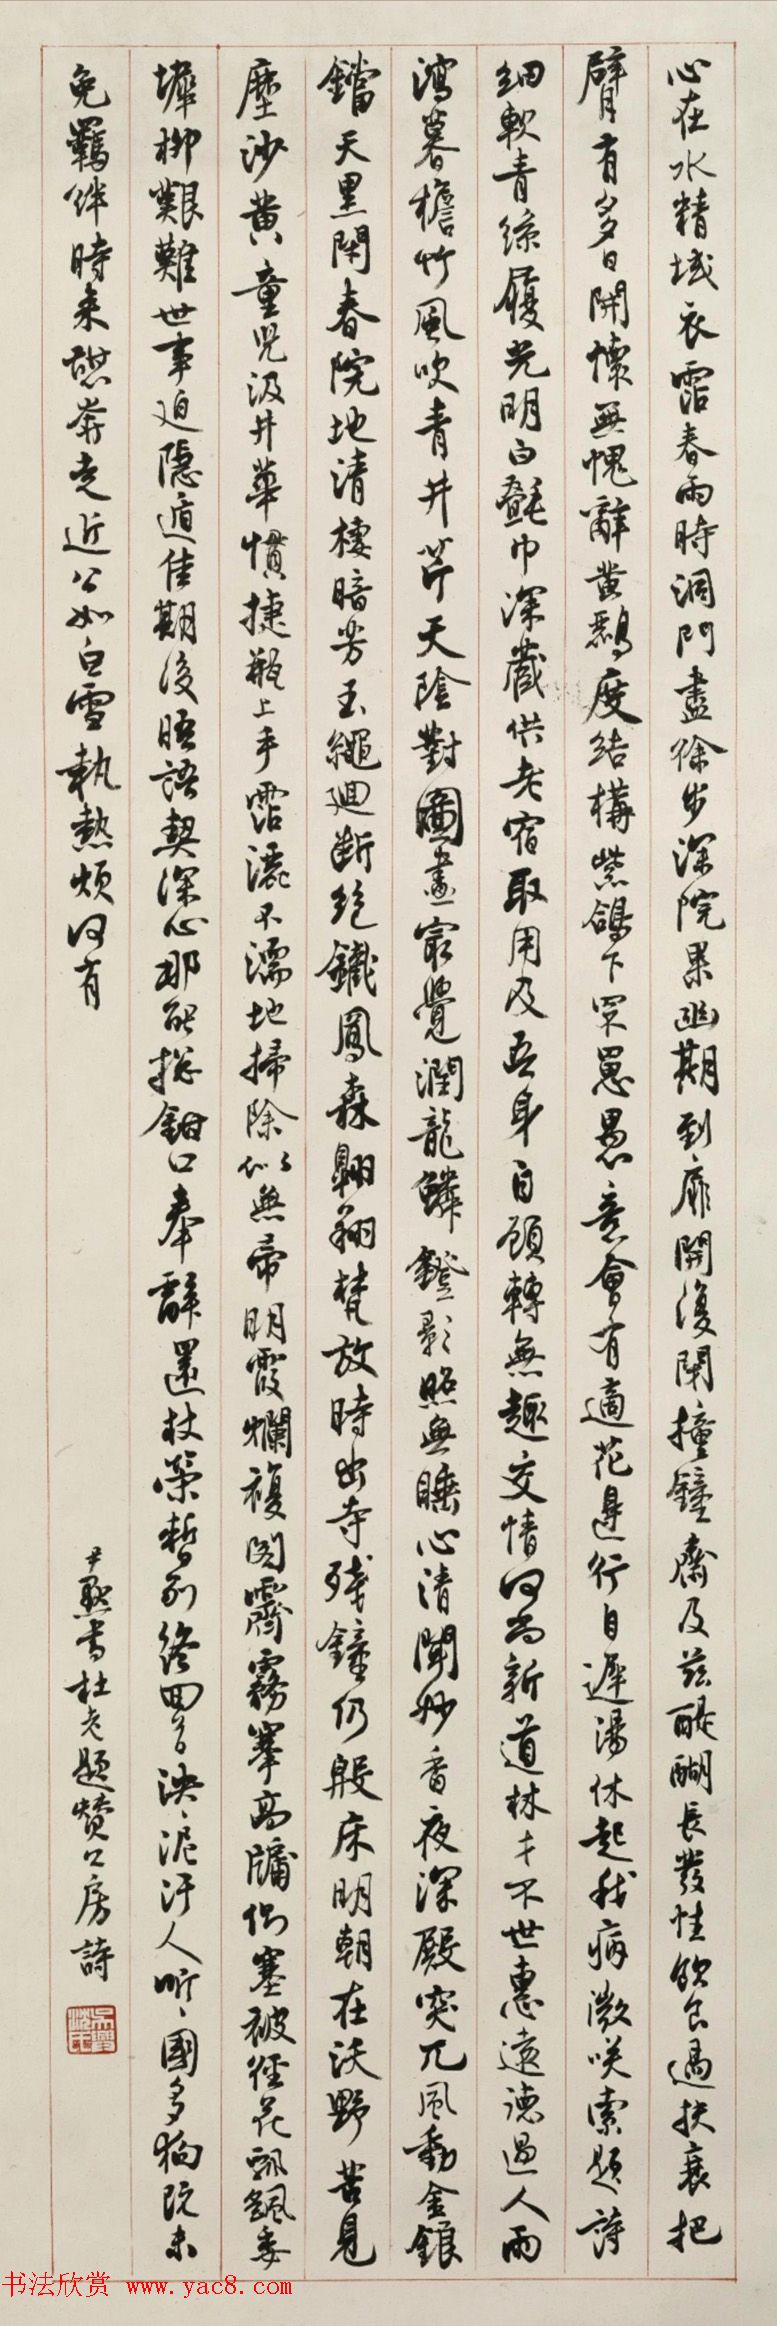 心在水精域衣霑春雨時洞門盡徐步深院果幽期到扉開復閉撞鐘齋及茲醍醐長發性飲食過扶衰把
臂有多日開懷無愧辭黃鸝度結構紫鴿下罘罳愚意會有適花邊行自遲湯休起我病微咲索題詩
細軟青絲履光明白氎巾深藏供老宿取用及吾身自顧轉無趣交情何尚新道林才不世惠遠德過人雨
瀉暮檐竹風吹青井芹天陰對圖畫最覺潤龍鱗鐙影照無睡心清聞妙香夜深殿突兀風動金鋃
鐺天黑閉春院地清棲暗芳玉繩迴斷絕鐵鳳森翱翔梵放時出寺殘鐘仍殷床明朝在沃野苦見
塵沙黃童兒汲井華慣捷瓶上手霑灑不濡地掃除似無帚明霞爛複閣霽霧搴高牖側塞被徑花飄颻委
墀柳艱難世事迫隱遁佳期後晤語契深心那能捴鉗口奉辭還杖策暫別終回首泱泱泥汙人听听國多狗既未
免羈絆時來憩奔走近公如白雪執熱煩何有
尹默書杜老題贊公房詩
吳興沈氏
书法欣赏 www.yac8.com